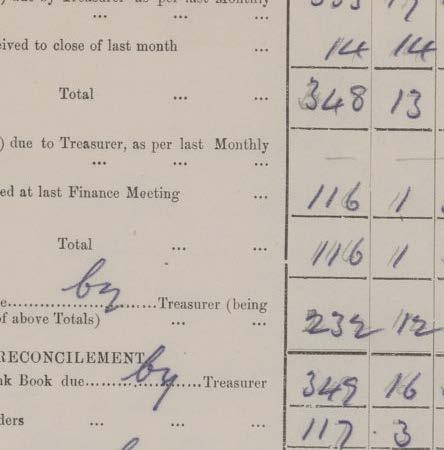 due by Treasurer as per last Monthly
... ... ...
ceived to close of last month ... 14 14
Total ... ... 348 13
) due to Treasurer, as per last Monthly
... ... ... — —
ed at last Finance Meeting ... 116 1
Total ... ... 116 1
by
e...............................Treasurer (being
of above Totals) ... ... 232 12
RECONCILEMENT
nk Book due......by......Treasurer 349 16
ders ... ... ... 117 3